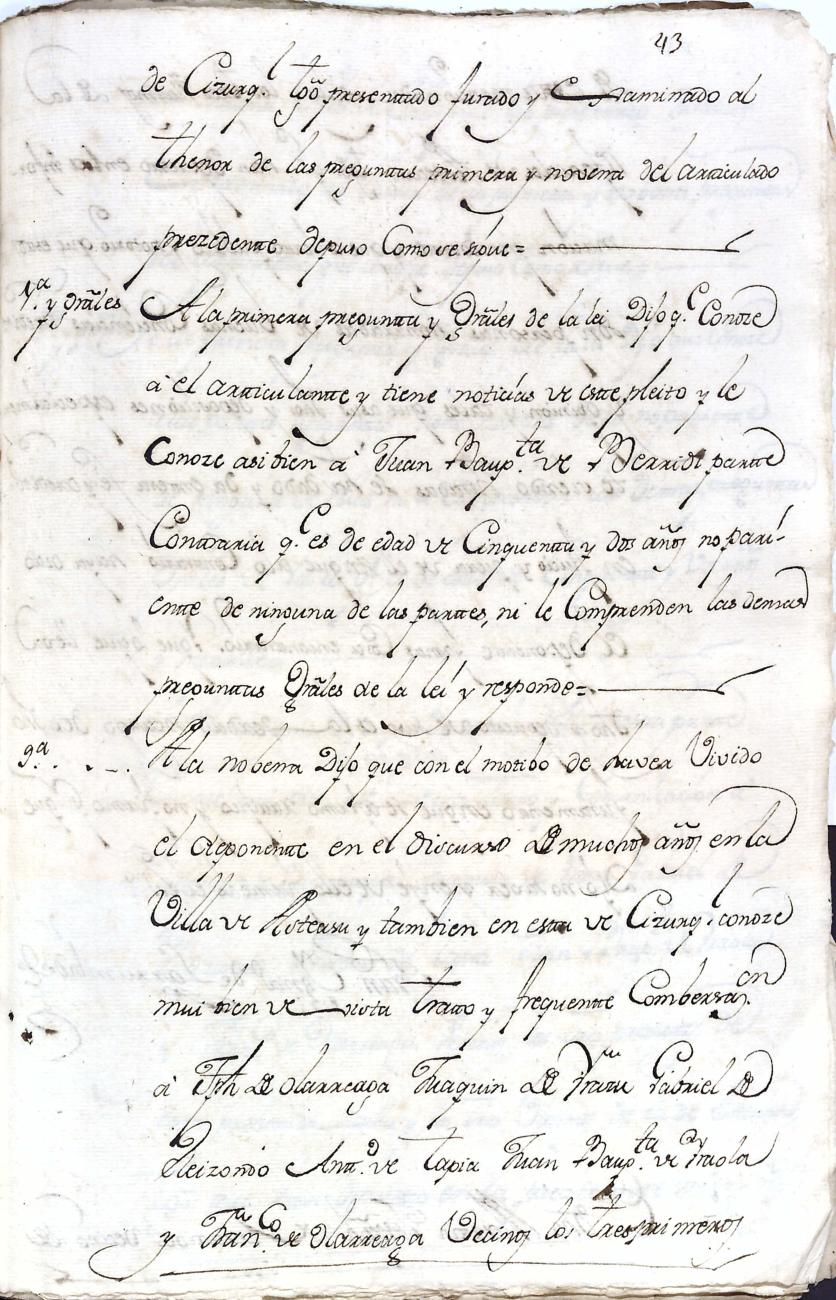 43
de Cizurq.l tgõ presenttado jurado y Examinado al
thenor de las preguntas primera y novena del articulado
prezedentte depuso Como se sigue =
1.a y Grãles A la primera pregunta y Grãles de la lei Dijo q.e Conoze
à el articulantte y tiene noticias de estte pleito y le
Conoze asi bien à Juan Baup.ta de Berridi partte
Contraria q.e es de edad de Cinquentta y dos años no pari-
entte de ninguna de las parttes, ni le Comprenden las demas
preguntas Grãles de la lei y responde =
9.a A la nobena Dijo que con el motibo de haver Vivido
el deponentte en el discurso de muchos años en la
Villa de Asteasu y tambien en esta de Cizurq.l conoze
mui bien de vista tratto y frequentte Combersaz.on
à Jph de Olarreaga Juaquin de Yrazu Gabriel de
Eleizondo Antt.o de tapia Juan Baup.ta de Yraola
y Fran.co de Olarreaga Vecinos los tres primeros